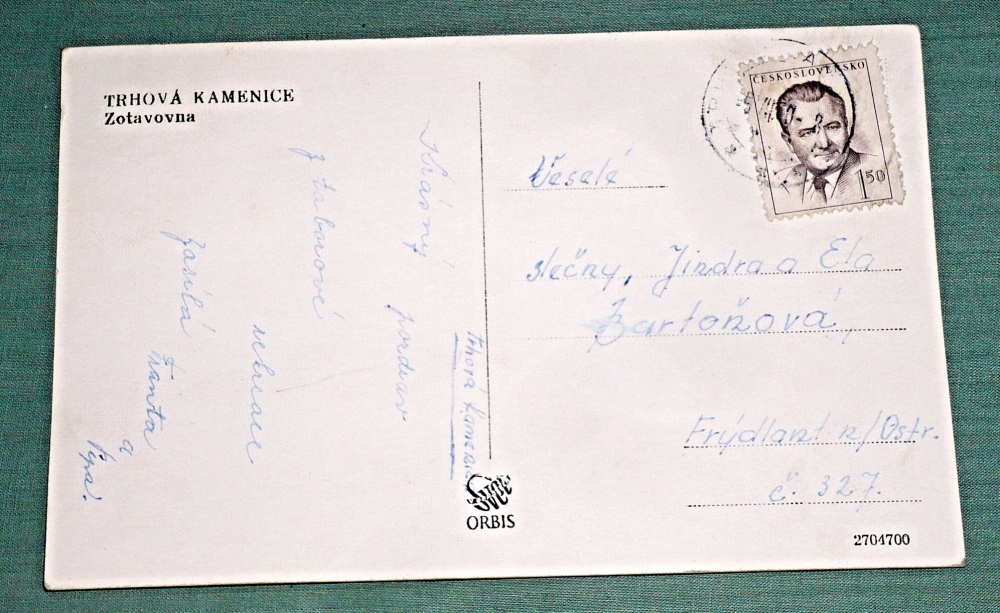 TRHOVÁ KAMENICE
Zotavovna
Trhová Kamenice
Krásný pozdrav
z táborové
rekreace
zasílá Franta
a
Pepa.
ČESKOSLOVENSKO
1 50
Veselé
slečny, Jindra a Ela
Bartoňová,
Frýdlant n/Ostr.
č. 327.
ORBIS
2704700